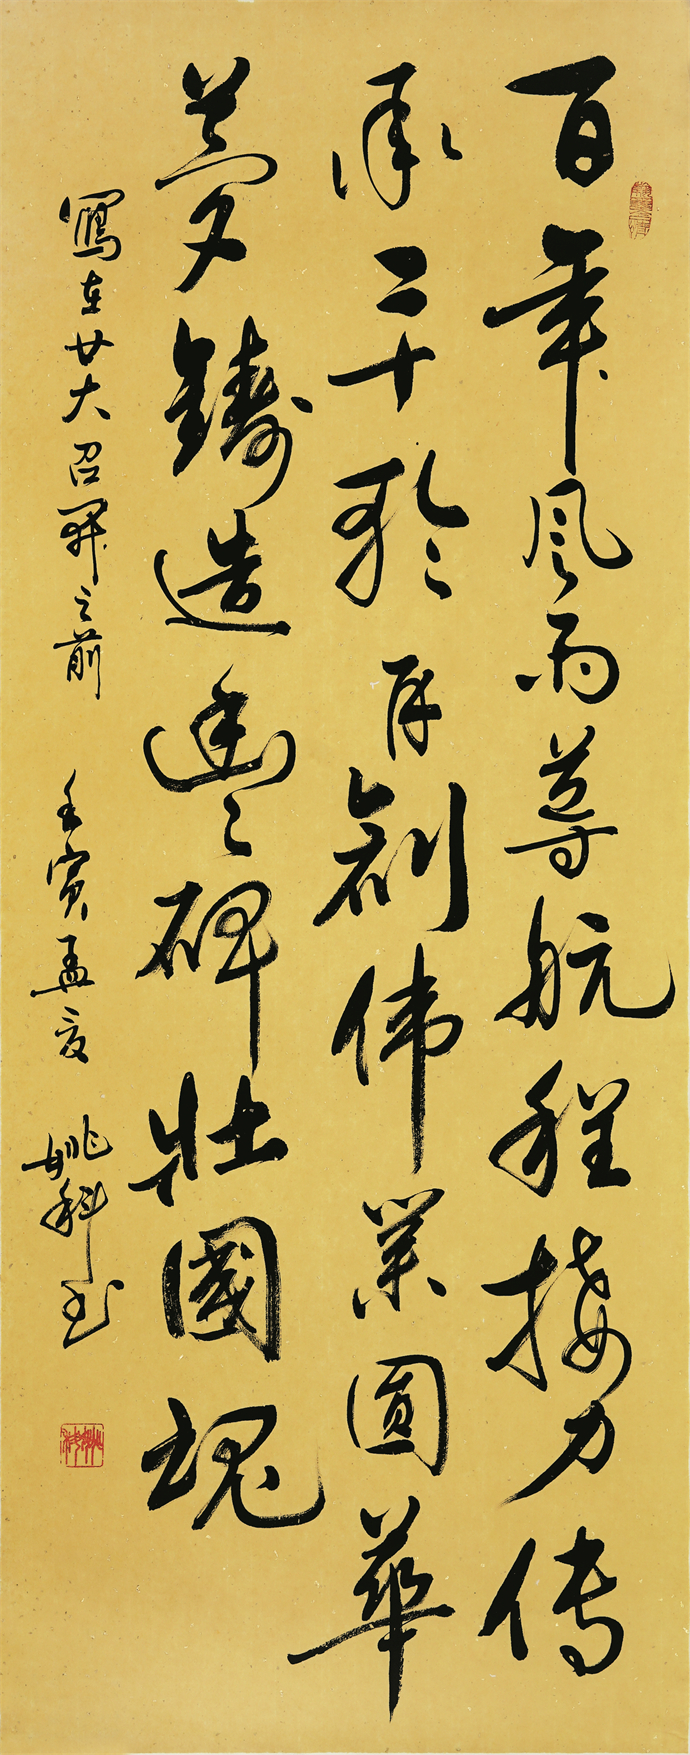 百年風雨導航程接力傳
承二十再創偉業圓華
夢鑄造豐碑壯國魂
寫在廿大召開之前 壬寅孟夏 姚科书